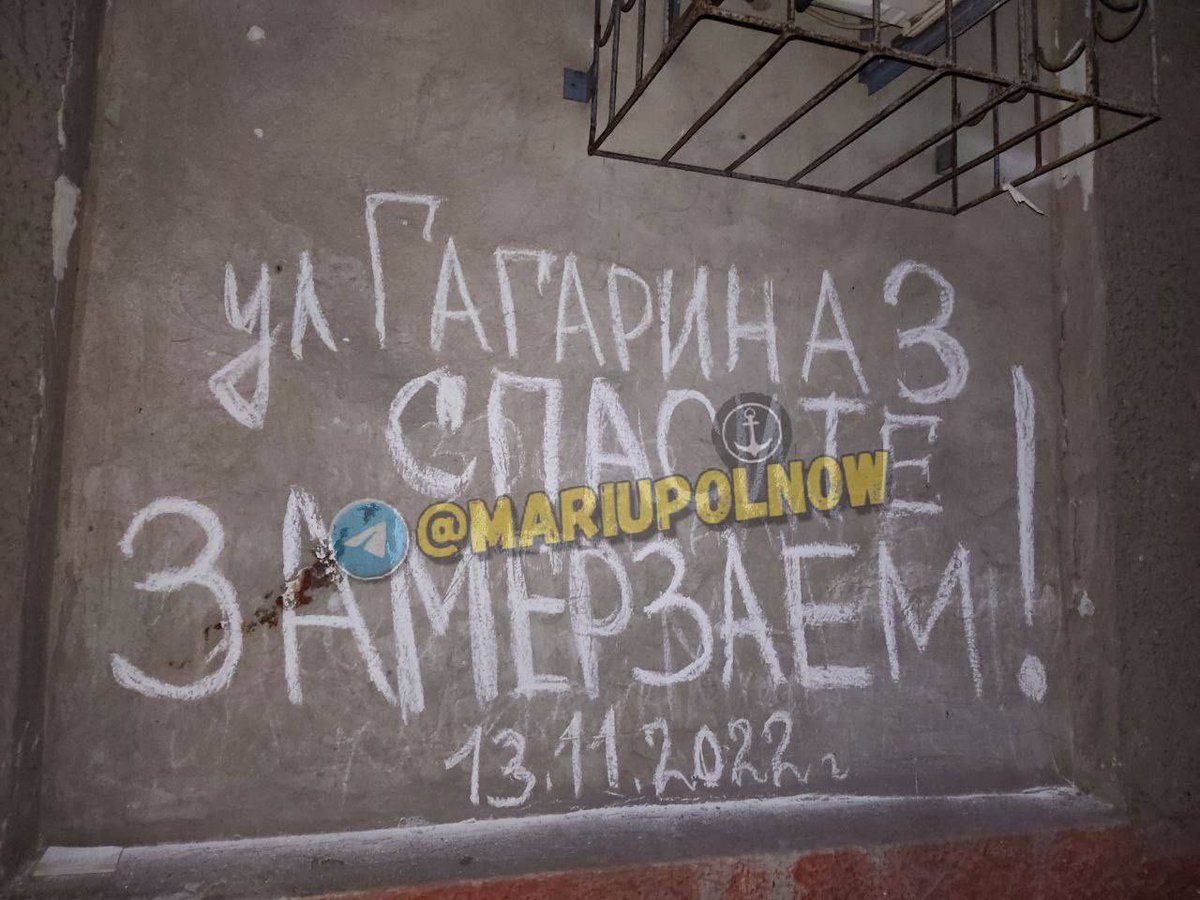 ул. ГАГАРИНА 3
СПАСИТЕ
@MARIUPOLNOW
ЗАМЕРЗАЕМ!
13.11.2022г